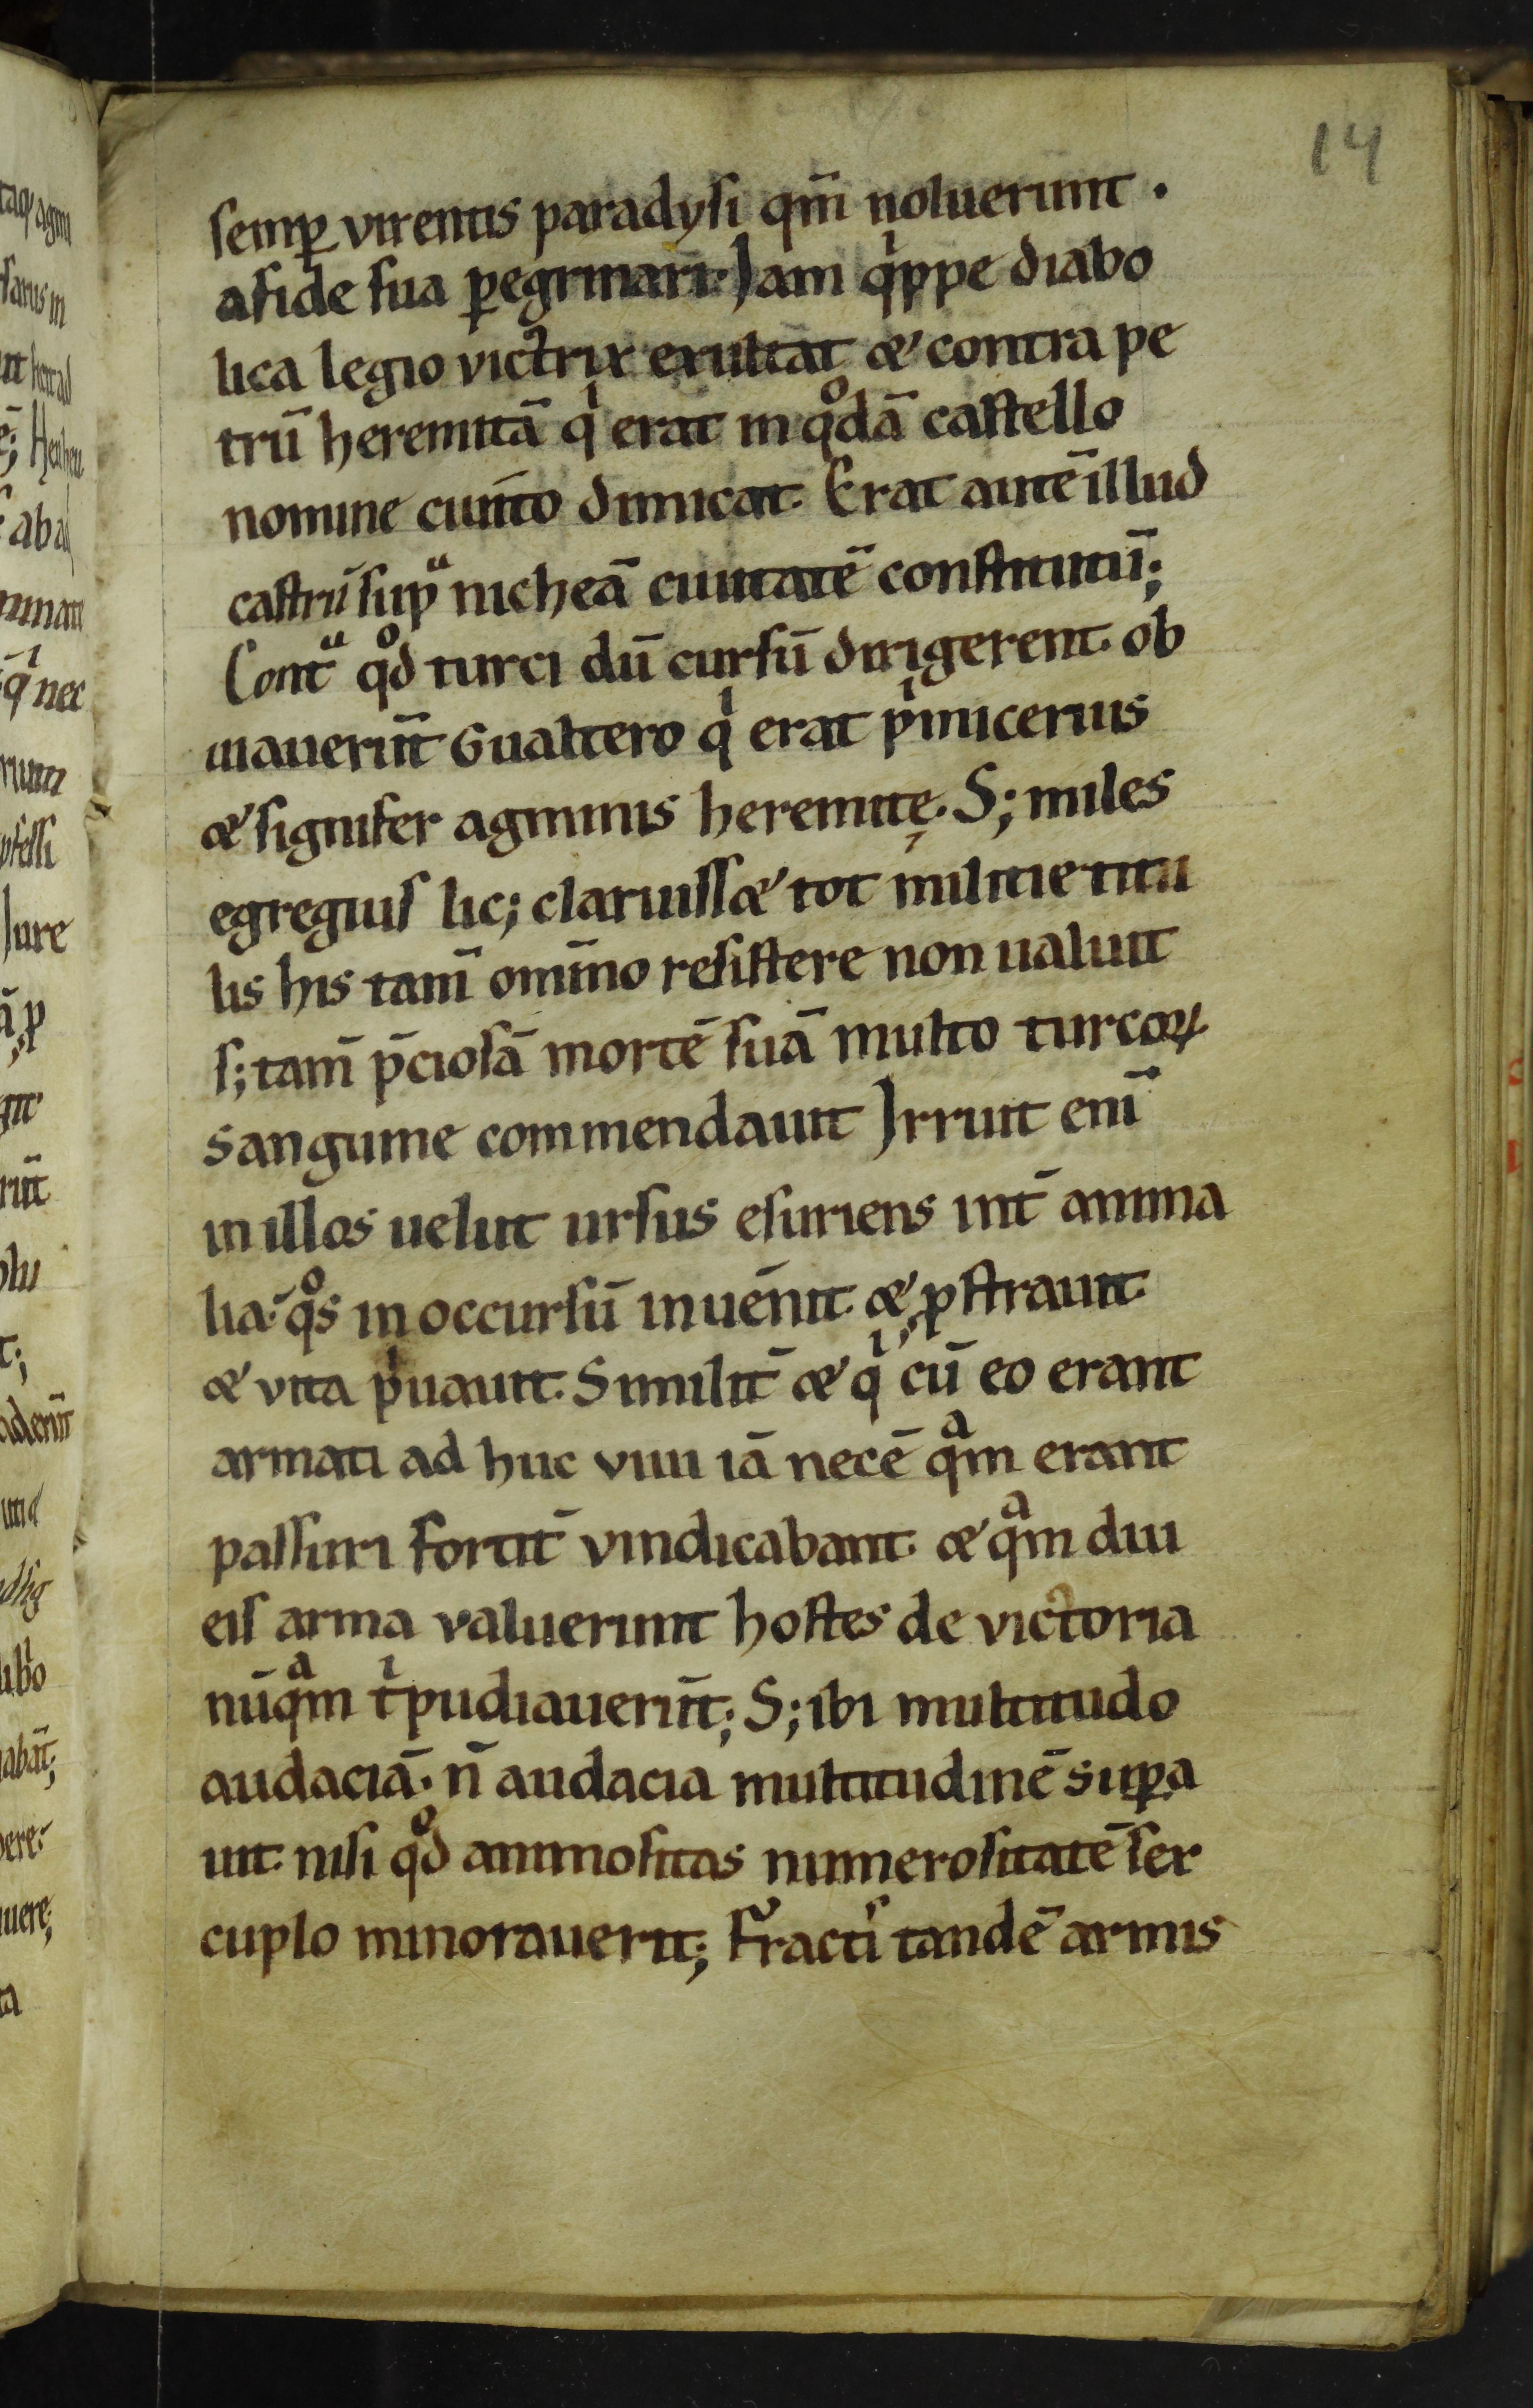 14
semꝑ virentis paradysi qm̄ noluerunt .
a fide sua ꝑegrinari. Iam qͥppe diabo
lica legio victrix exultat & contra pe
trū heremitā qͥ erat in qͦdā castello
nomine ciuito dimicat. Erat autē illud
castrū supᵃ nicheā ciuitatē constitutū;
Contᵃ qͦd turci dū cursū dirigerent. ob
uiauerūt Gualtero qͥ erat pͥmicerius
& signifer agminis heremitę. S; miles
egregius lic; claruiss& tot militię titu
lis his tam̄ omīno resistere non ualuit
s; tam̄ p̄ciosā mortē suā multo turcoꝝ
sanguine commendauit Irruit enī
in illos uelut ursus esuriens int̄ anima
lia. qͦs in occursū inuenit. & ꝓstrauit.
& vita pͥuauit. Similit̄ & qͥ cū eo erant
armati ad huc viui iā necē qᵃm erant
passuri fortit̄ vindicabant. & qᵃm diu
eis arma valuerunt hostes de victoria
nūqᵃm tͥpudiauerūt; S; ibi multitudo
audaciā. n̄ audacia multitudinē suꝑa
uit. nisi qͦd animositas numerositatē sex
cuplo minorauerit; Fractis tandē armis